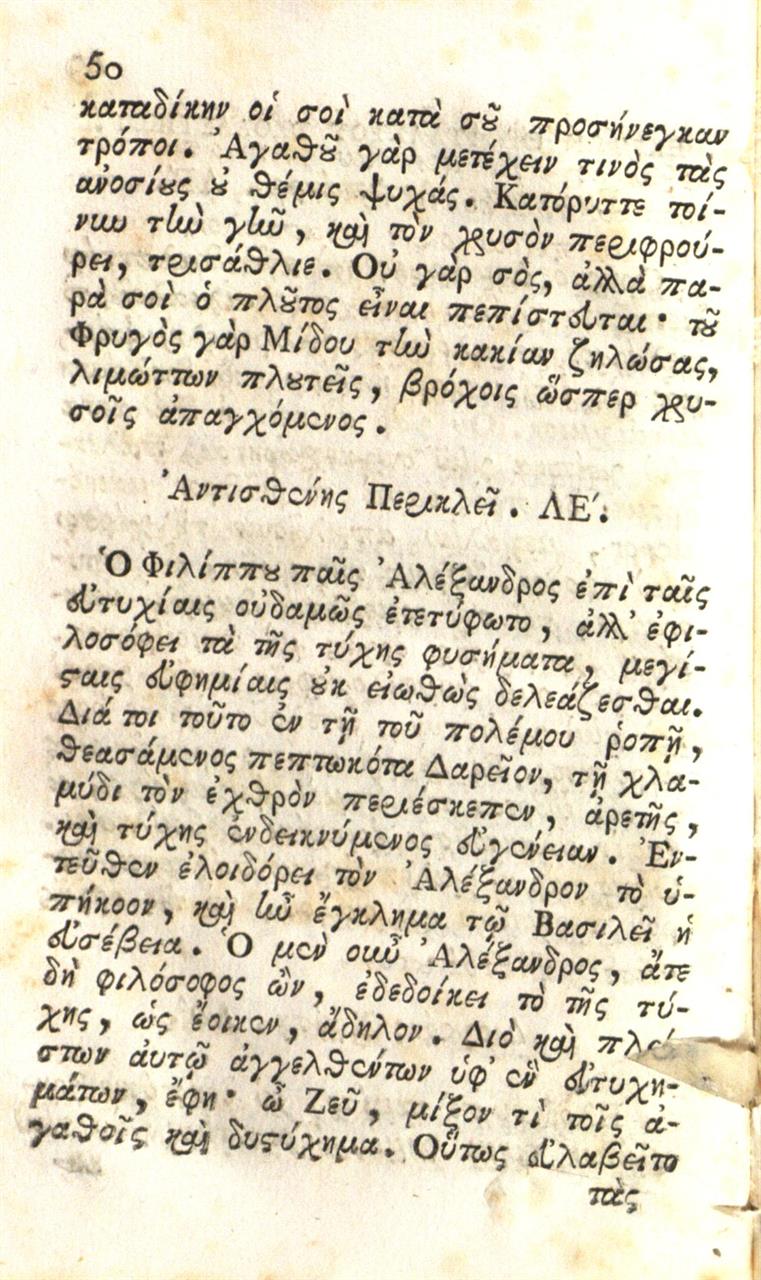 50
καταδίκην οἱ σοὶ κατὰ σοῦ προσήνεγκαν
τρόποι. Ἀγαθοῦ γὰρ μετέχειν τινὸς τὰς
ἀνοσίους οὐ θέμις ψυχάς. Κατόρυττε τοί-
νυν τὴν γῆν, καὶ τὸν χρυσὸν περιφρού-
ρει, τρισάθλιε. Οὐ γὰρ σὸς, ἀλλὰ πα-
ρὰ σοὶ ὁ πλοῦτος εἶναι πεπίστευται· τοῦ
Φρυγὸς γὰρ Μίδου τὴν κακίαν ζηλώσας,
λιμώττων πλουτεῖς, βρόχοις ὥσπερ χρυ-
σοῖς ἀπαγχόμενος.
Ἀντισθένης Περικλεῖ. ΛΕ΄.
Ὁ Φιλίππου παῖς Ἀλέξανδρος ἐπὶ ταῖς
εὐτυχίαις οὐδαμῶς ἐτετύφωτο, ἀλλ' ἐφι-
λοσόφει τὰ τῆς τύχης φυσήματα, μεγί-
σταις εὐφημίαις οὐκ εἰωθὼς δελεάζεσθαι.
Διά τοι τοῦτο ἐν τῇ τοῦ πολέμου ῥοπῇ,
θεασάμενος πεπτωκότα Δαρεῖον, τῇ χλα-
μύδι τὸν ἐχθρὸν περιέσκεπεν, ἀρετῆς,
καὶ τύχης ἐνδεικνύμενος εὐγένειαν. Ἐν-
τεῦθεν ἐλοιδόρει τὸν Ἀλέξανδρον τὸ ὑ-
πήκοον, καὶ ἦν ἔγκλημα τῷ Βασιλεῖ ἡ
εὐσέβεια. Ὁ μὲν οὖν Ἀλέξανδρος, ἅτε
δὴ φιλόσοφος ὢν, ἐδεδοίκει τὸ τῆς τύ-
χης, ὡς ἔοικεν, ἄδηλον. Διὸ καὶ πλεί-
στων αὐτῷ ἀγγελθέντων ὑφ' ἓν εὐτυχη-
μάτων, ἔφη· ὦ Ζεῦ, μίξον τὶ τοῖς ἀ-
γαθοῖς καὶ δυστύχημα. Οὕτως εὐλαβεῖτο
τὰς